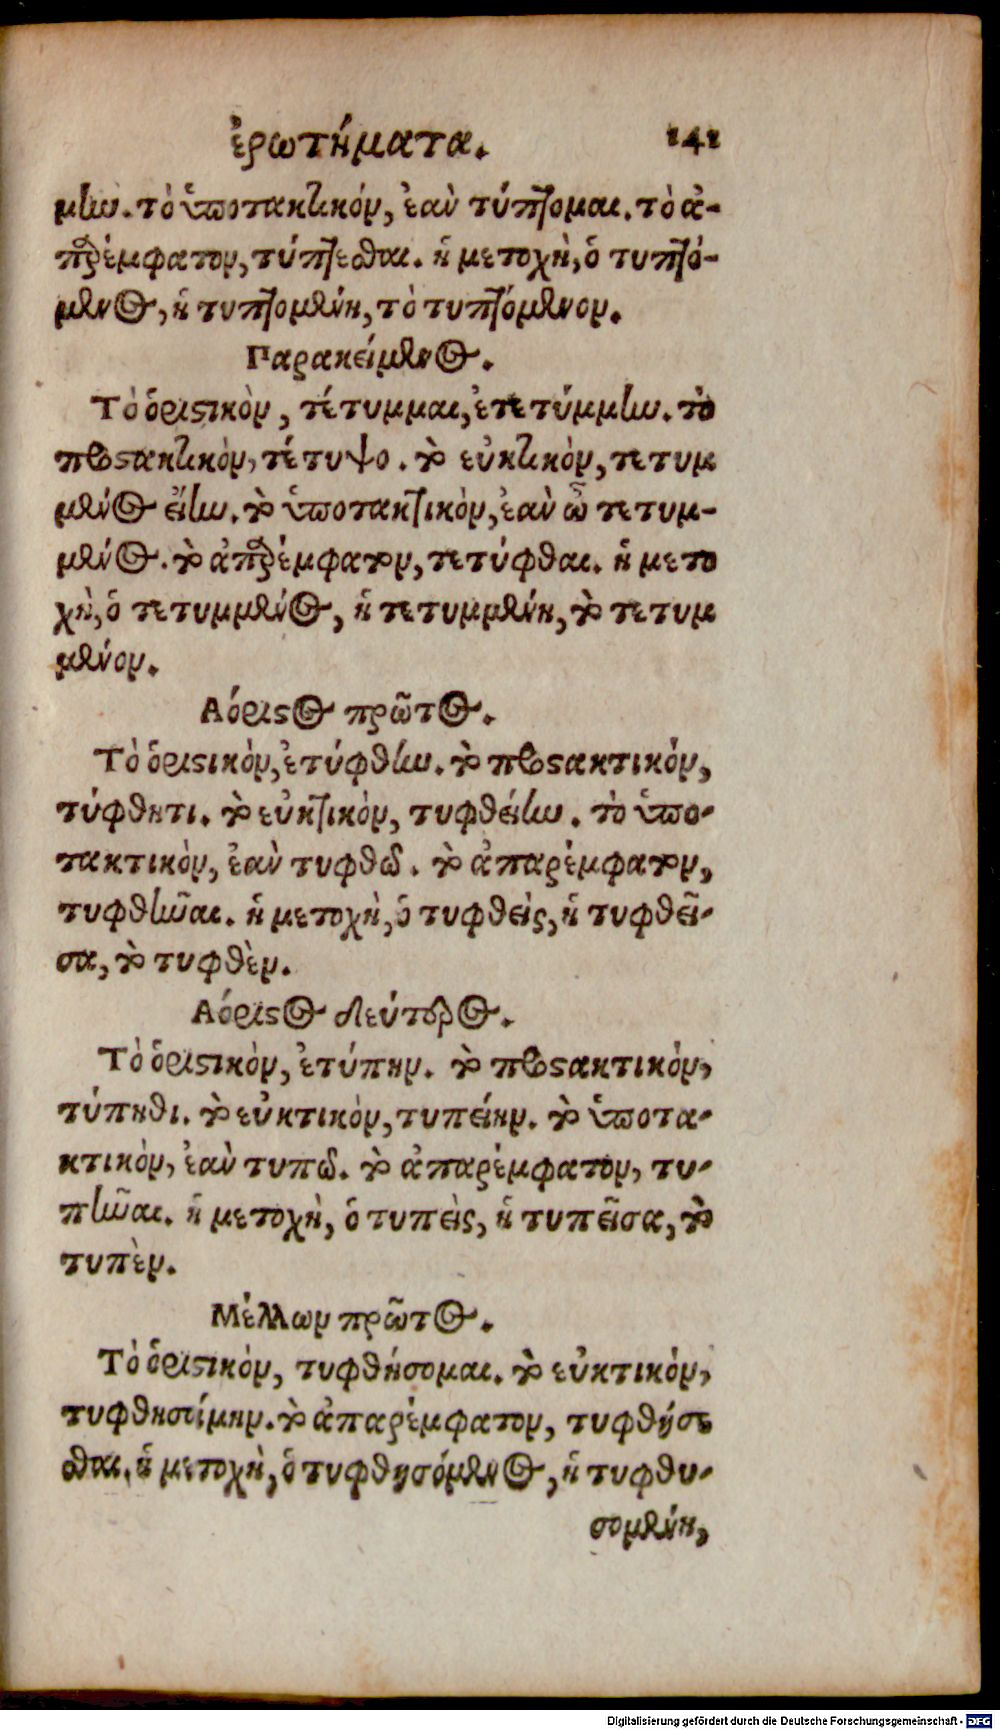 ἐρωτήματα. 141
μίω. τὸ ὑποτακτικόν, ἐὰν τύπτομαι. τὸ ἀ-
παρέμφατον, τύπτεσθαι. ἡ μετοχὴ, ὁ τυπτό-
μενος, ἡ τυπτομένη, τὸ τυπτόμενον.
Παρακείμενος.
Τὸ ὁριστικὸν, τέτυμμαι, ἐτετύμμην. τὸ
προστακτικὸν, τέτυψο. τὸ εὐκτικὸν, τετυμ
μένος εἴην. τὸ ὑποτακτικὸν, ἐὰν ὦ τετυμ-
μένος. τὸ ἀπαρέμφατον, τετύφθαι. ἡ μετο
χὴ, ὁ τετυμμένος, ἡ τετυμμένη, τὸ τετυμ
μένον.
Αόριστος πρῶτος.
Τὸ ὁριστικὸν, ἐτύφθην. τὸ προστακτικὸν,
τύφθητι. τὸ εὐκτικὸν, τυφθείην. τὸ ὑπο-
τακτικὸν, ἐὰν τυφθῶ. τὸ ἀπαρέμφατον,
τυφθῆναι. ἡ μετοχὴ, ὁ τυφθεὶς, ἡ τυφθεῖ-
σα, τὸ τυφθὲν.
Αόριστος δεύτερος.
Τὸ ὁριστικὸν, ἐτύπην. τὸ προστακτικὸν,
τύπηθι. τὸ εὐκτικὸν, τυπείην. τὸ ὑποτα-
κτικὸν, ἐὰν τυπῶ. τὸ ἀπαρέμφατον, τυ-
πῆναι. ἡ μετοχὴ, ὁ τυπεὶς, ἡ τυπεῖσα, τὸ
τυπὲν.
Μέλλων πρῶτος.
Τὸ ὁριστικὸν, τυφθήσομαι. τὸ εὐκτικὸν,
τυφθησοίμην. τὸ ἀπαρέμφατον, τυφθήσε
σθαι. ἡ μετοχὴ, ὁ τυφθησόμενος, ἡ τυφθυ-
σομένη,
Digitalisierung gefördert durch die Deutsche Forschungsgemeinschaft - DFG